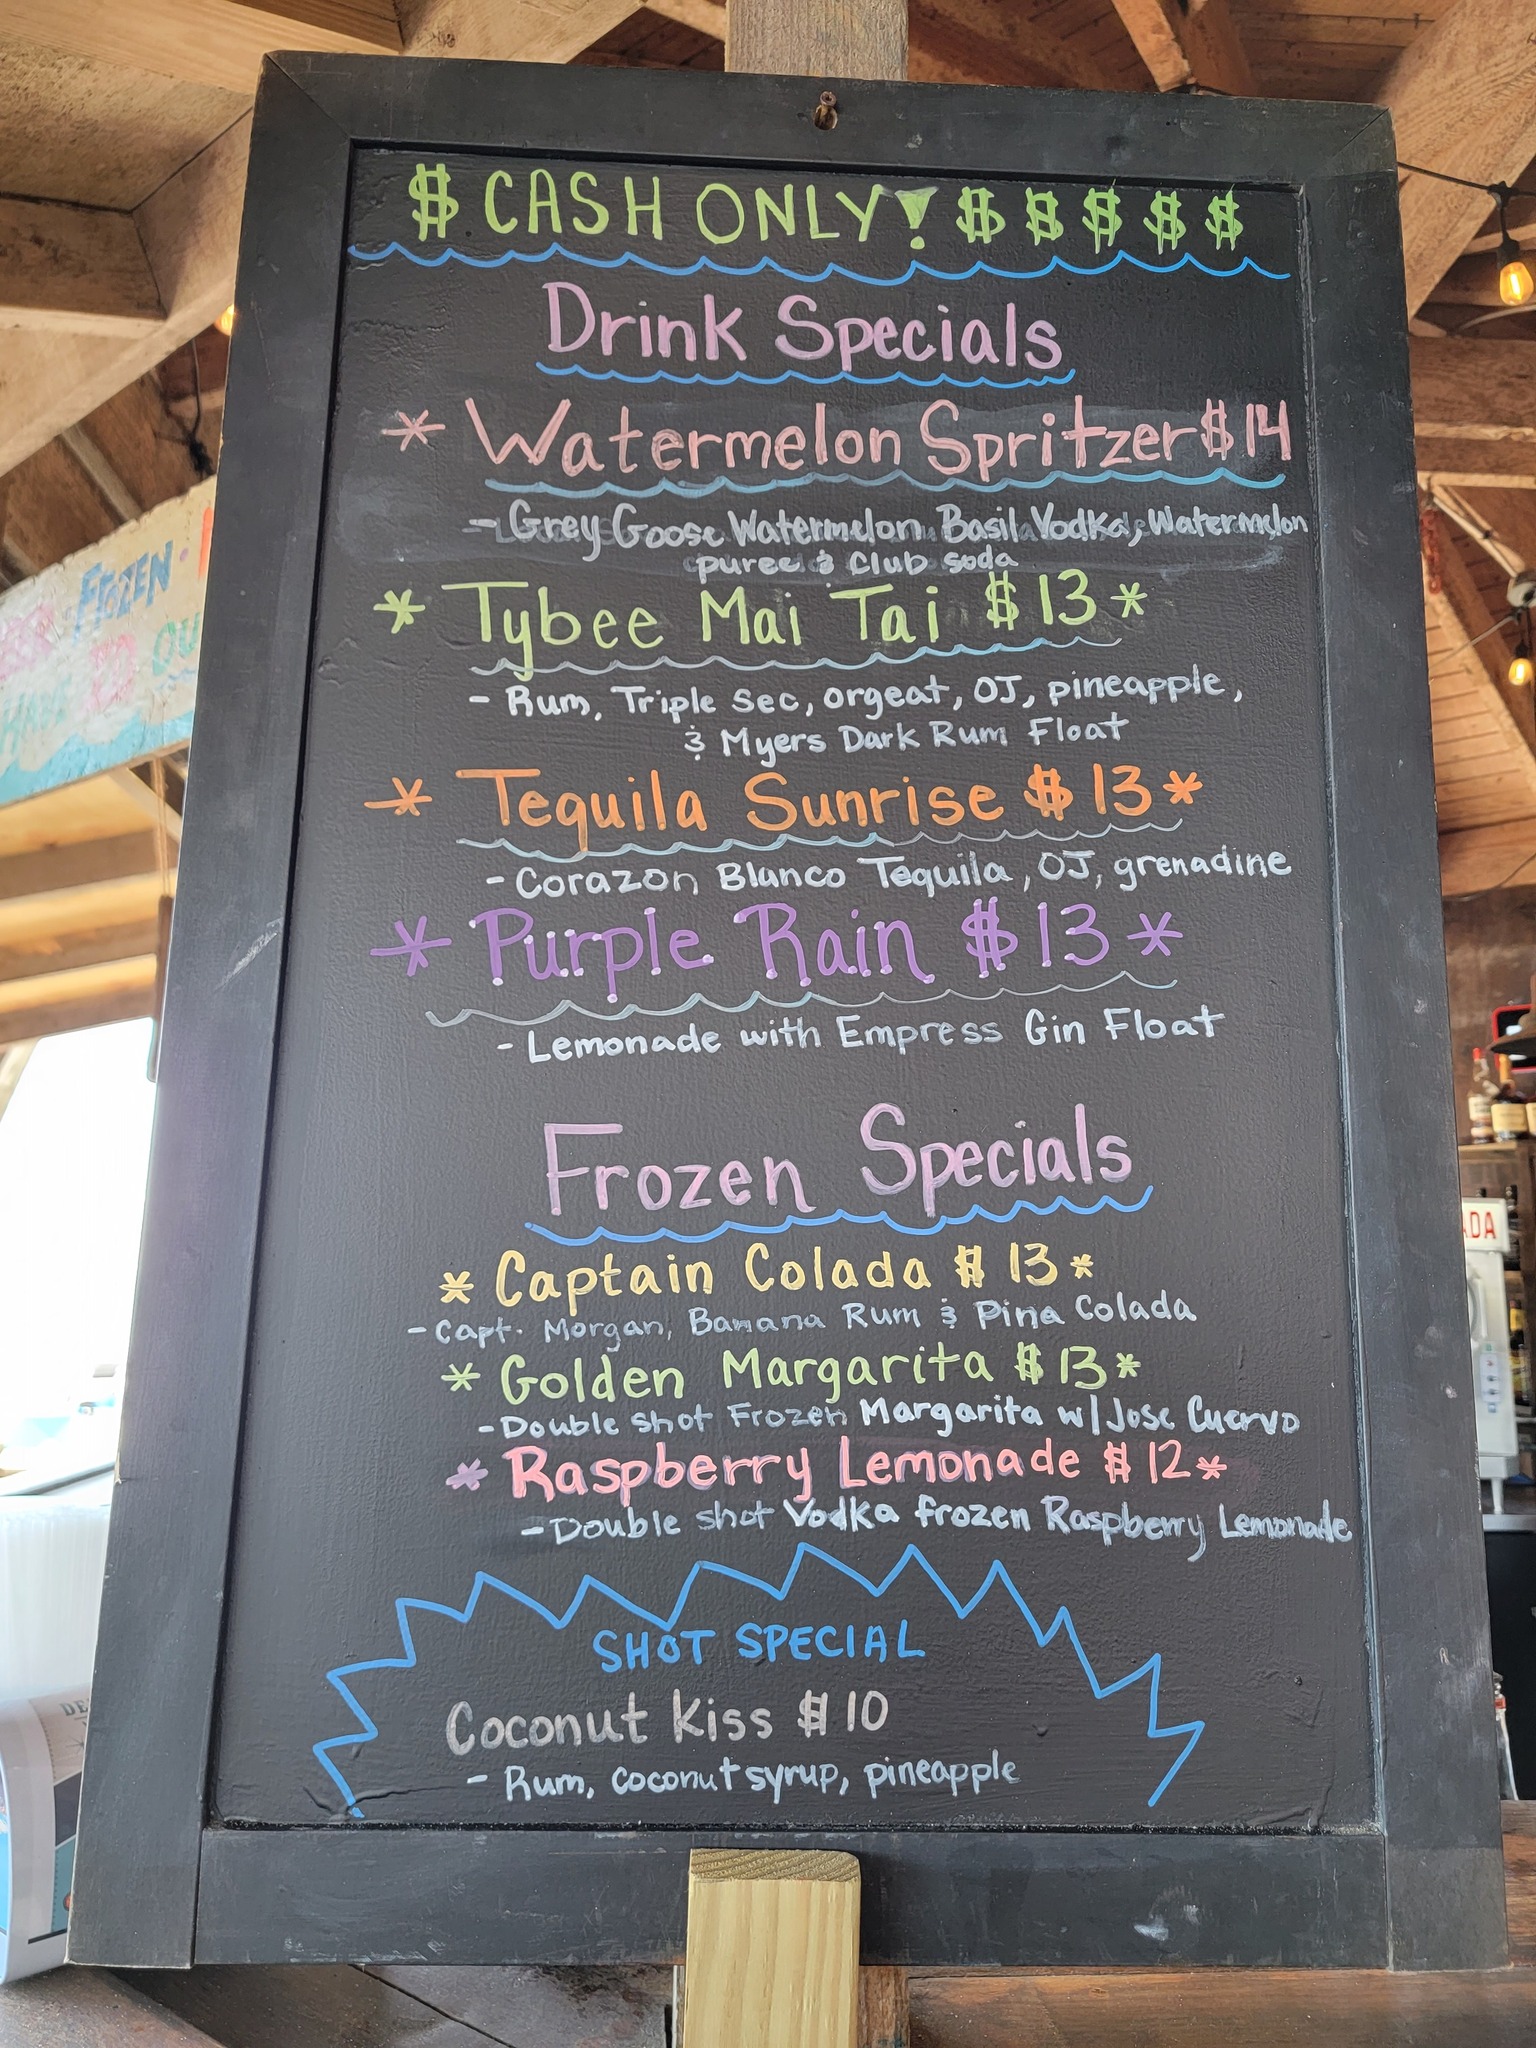 $ CASH ONLY! $ $ $ $ $
Drink Specials
* Watermelon Spritzer $14
- Grey Goose Watermelon Basil Vodka, Watermelon
puree & Club soda
* Tybee Mai Tai $13 *
- Rum, Triple Sec, orgeat, OJ, pineapple,
& Myers Dark Rum Float
* Tequila Sunrise $13 *
- Corazon Blanco Tequila, OJ, grenadine
* Purple Rain $13 *
- Lemonade with Empress Gin Float
Frozen Specials
* Captain Colada $13 *
- Capt. Morgan, Banana Rum & Pina Colada
* Golden Margarita $13 *
- Double shot Frozen Margarita w/ Jose Cuervo
* Raspberry Lemonade $12 *
- Double shot Vodka frozen Raspberry Lemonade
SHOT SPECIAL
Coconut Kiss $10
- Rum, coconut syrup, pineapple
FROZEN
HAVE TO